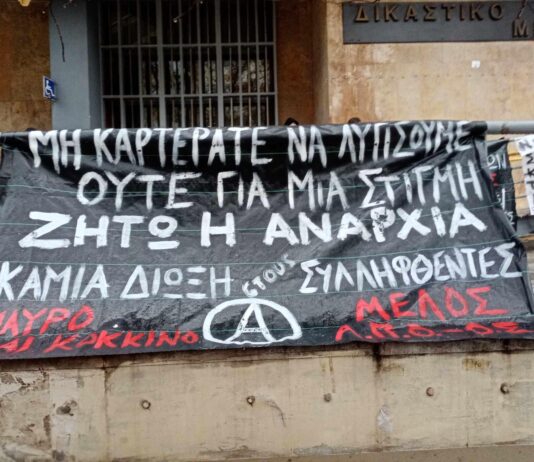 ΔΙΚΑΣΤΙΚΟ
Μ
ΜΗ ΚΑΡΤΕΡΑΤΕ ΝΑ ΛΥΓΙΣΟΥΜΕ
ΟΥΤΕ ΓΙΑ ΜΙΑ ΣΤΙΓΜΗ
ΖΗΤΩ Η ΑΝΑΡΧΙΑ
ΚΑΜΙΑ ΔΙΩΞΗ στους ΣΥΛΛΗΦΘΕΝΤΕΣ
ΑΥΡΟ
ΑΙ ΚΟΚΚΙΝΟ
ΜΕΛΟΣ
Α.Π.Ο-Ο.Σ